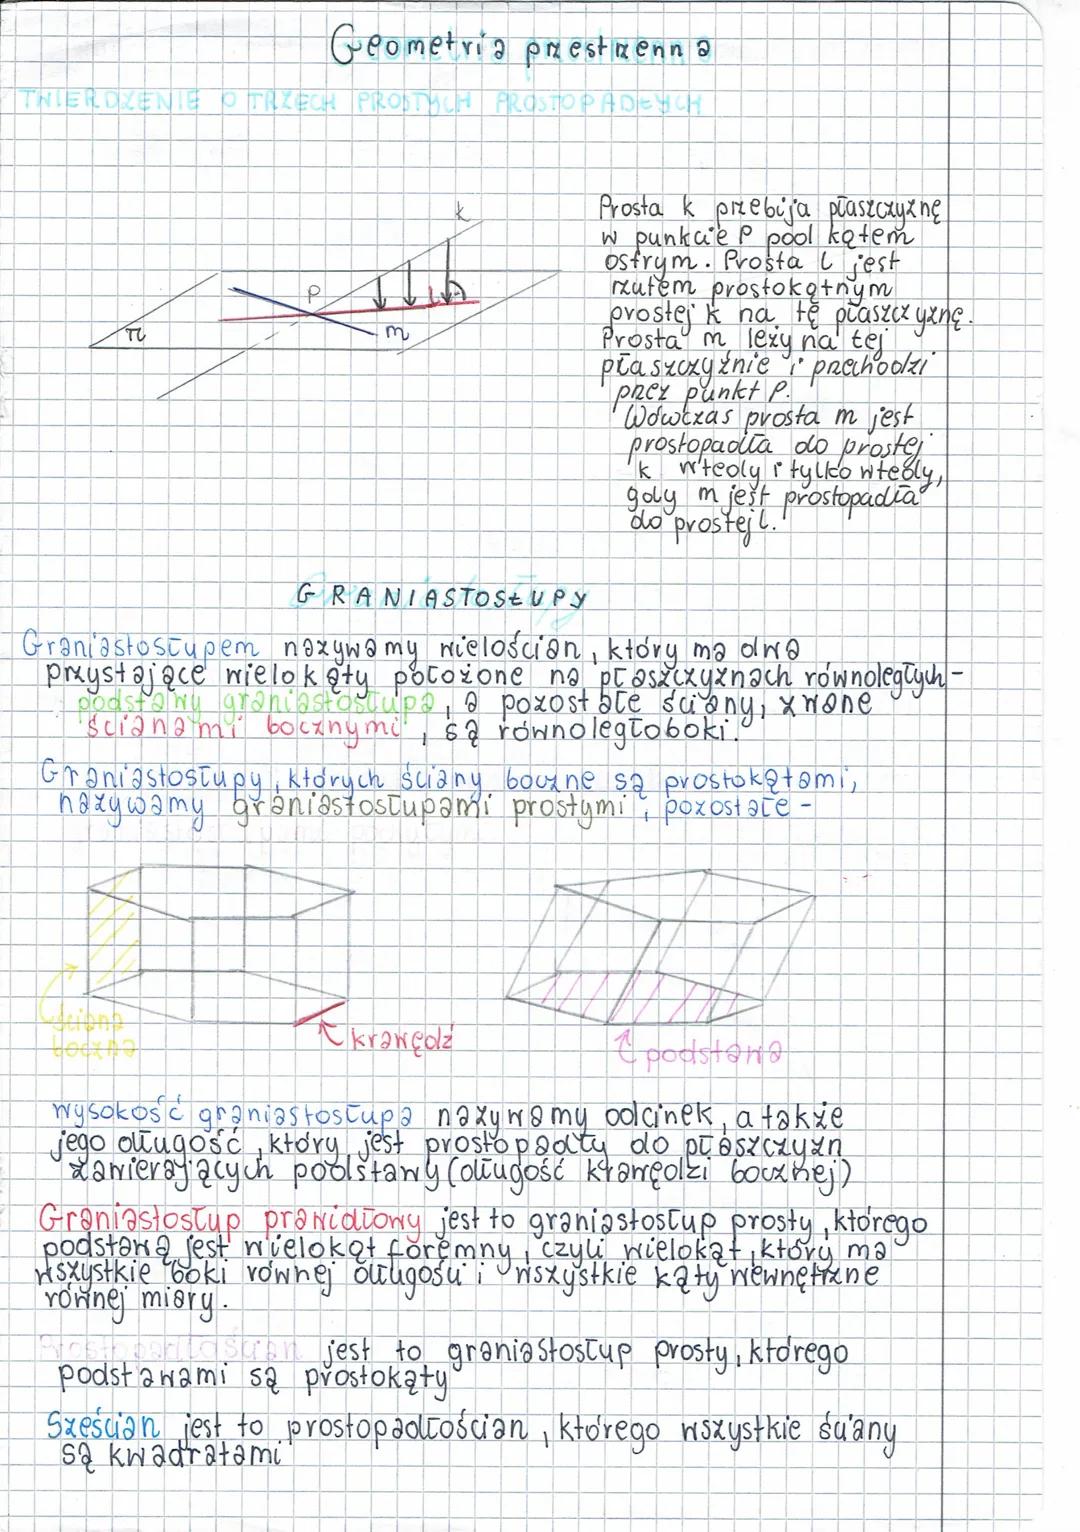 Geometria przestrzenna
TWIERDZENIE O TRZECH PROSTYCH PROSTOPADŁYCH
k
P
π
m
Prosta k przebija płaszczyznę
w punkcie P pod kątem
ostrym. Prosta l jest
rzutem prostokątnym
prostej k na tę płaszczyznę.
Prosta m leży na tej
płaszczyźnie i przechodzi
przez punkt P.
Wówczas prosta m jest
prostopadła do prostej
k wtedy i tylko wtedy,
gdy m jest prostopadła
do prostej l.
GRANIASTOSŁUPY
Graniastosłupem nazywamy wielościan, który ma dwa
przystające wielokąty położone na płaszczyznach równoległych -
podstawy graniastosłupa, a pozostałe ściany, zwane
ścianami bocznymi, są równoległoboki.
Graniastosłupy, których ściany boczne są prostokątami,
nazywamy graniastosłupami prostymi, pozostałe -
ściana
boczna
krawędź
podstawa
Wysokość graniastosłupa nazywamy odcinek, a także
jego długość, który jest prostopadły do płaszczyzn
zawierających podstawy (długość krawędzi bocznej)
Graniastosłup prawidłowy jest to graniastosłup prosty, którego
podstawą jest wielokąt foremny, czyli wielokąt, który ma
wszystkie boki równej długości i wszystkie kąty wewnętrzne
równej miary.
Prostopadłościan jest to graniastosłup prosty, którego
podstawami są prostokąty
Sześcian jest to prostopadłościan, którego wszystkie ściany
są kwadratami